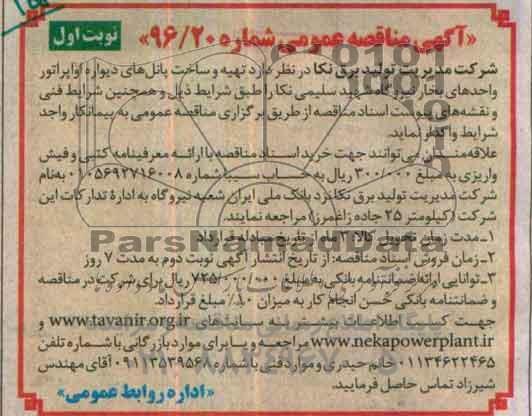 «آگهی مناقصه عمومی شماره ۹۶/۲۰»
نوبت اول
شرکت مدیریت تولید برق نکا در نظر دارد تهیه و ساخت پانل‌های دیواره اواپراتور
واحدهای بخار نیروگاه شهید سلیمی نکا را طبق شرایط ذیل و همچنین شرایط فنی
و نقشه‌های پیوست اسناد مناقصه از طریق برگزاری مناقصه عمومی به پیمانکار واجد
شرایط واگذار نماید.
علاقه‌مندان می‌توانند جهت خرید اسناد مناقصه با ارائه معرفینامه کتبی و فیش
واریزی به مبلغ ۳۰۰/۰۰۰ ریال به حساب سیبا شماره ۰۱۰۵۶۹۲۷۱۶۰۰۸ به‌نام
شرکت مدیریت تولید برق نکا نزد بانک ملی ایران شعبه نیروگاه به ادارهٔ تدارکات این
شرکت (کیلومتر ۲۵ جاده زاغمرز) مراجعه نمایند.
۱ـ مدت زمان تحویل کالا: ۳ ماه از تاریخ مبادله قرارداد
۲ـ زمان فروش اسناد مناقصه: از تاریخ انتشار آگهی نوبت دوم به مدت ۷ روز
۳ـ توانایی ارائه ضمانتنامه بانکی به مبلغ ۷۲۵/۰۰۰/۰۰۰ ریال برای شرکت در مناقصه
و ضمانتنامه بانکی حُسن انجام کار به میزان ۱۰٪ مبلغ قرارداد.
جهت کسب اطلاعات بیشتر به سایت‌های www.tavanir.org.ir و
www.nekapowerplant.ir مراجعه و یا برای موارد بازرگانی با شماره تلفن
۰۱۱۳۴۶۲۲۴۶۵ خانم حیدری و موارد فنی با شماره ۰۹۱۱۳۵۳۹۵۶۸ آقای مهندس
شیرزاد تماس حاصل فرمایید.
«اداره روابط عمومی»
ParsNamadData